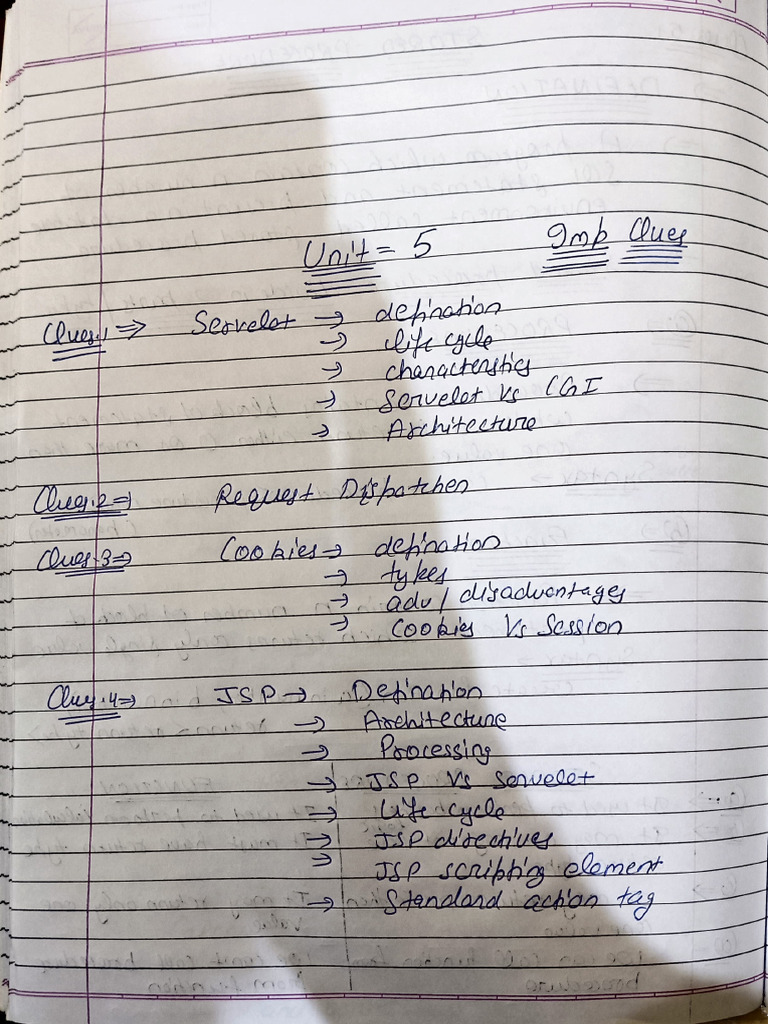 Unit = 5 Imp Ques
Ques.1 ⇒ Servelet → defination
→ life cycle
→ characterstics
→ Servelet Vs CGI
→ Architecture
Ques.2 ⇒ Request Dispatcher
Ques.3 ⇒ Cookies → defination
→ tykes
→ adv / disadvantages
→ Cookies Vs Session
Ques.4 ⇒ JSP → Defination
→ Architecture
→ Processing
→ JSP Vs Servelet
→ Life cycle
→ JSP directives
→ JSP scripting element
→ Standard action tag